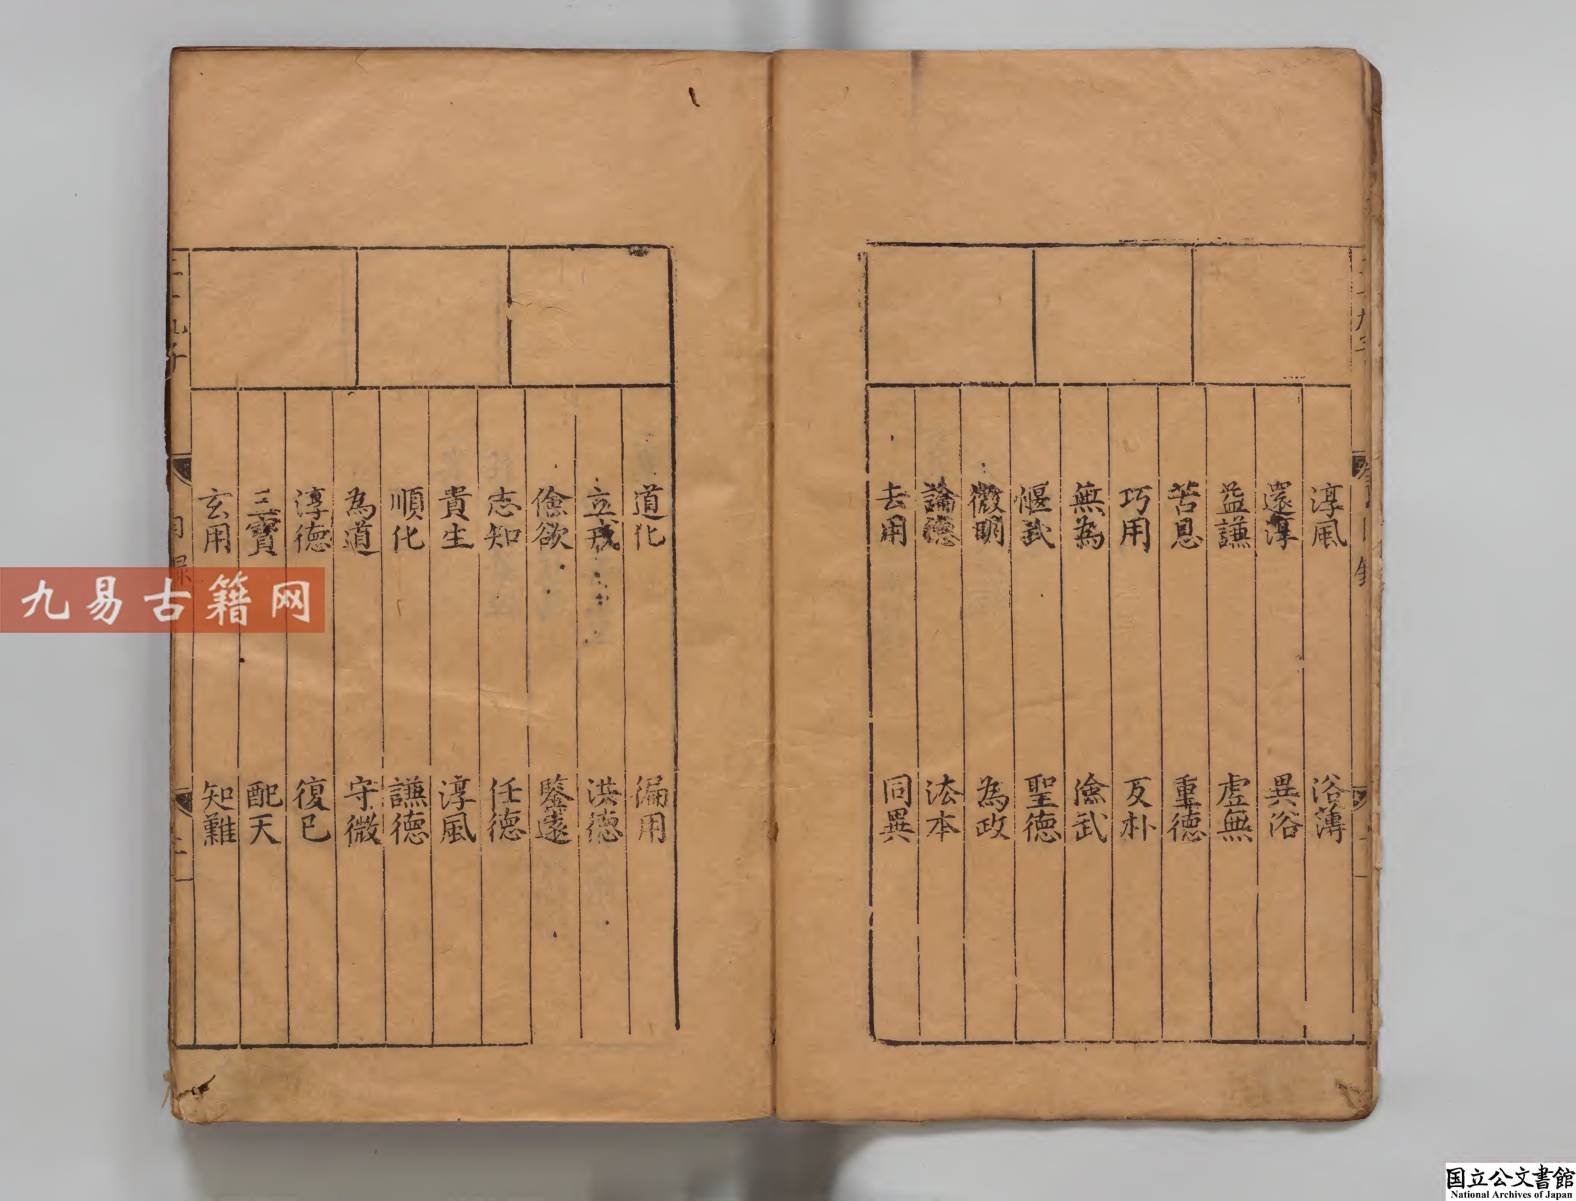 淳風　俗薄
還淳　異俗
益謙　虛無
苦恩　重德
巧用　反朴
無為　儉武
偃武　聖德
微明　為政
論德　法本
去用　同異
道化　偏用
立戒　洪德
儉欲　鑒遠
志知　任德
貴生　淳風
順化　謙德
為道　守微
淳德　復已
三寶　配天
玄用　知難
九易古籍网
国立公文書館
National Archives of Japan